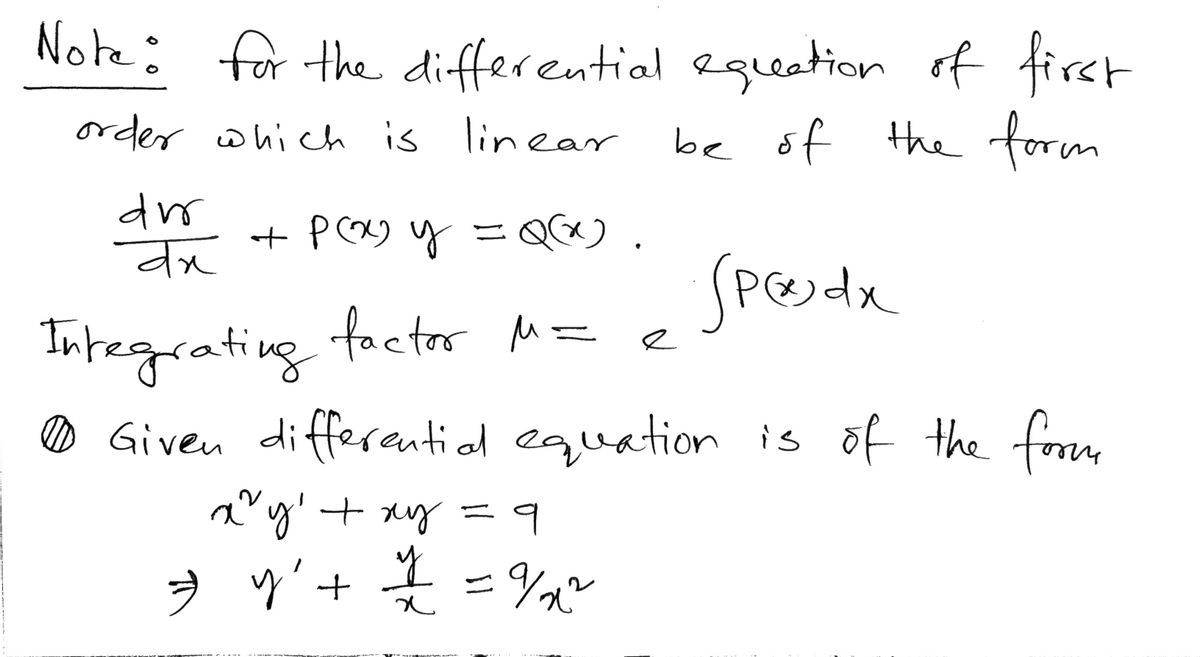 Note: for the differential equation of first
order which is linear be of the form
dy/dx + P(x) y = Q(x).
Integrating factor μ = e^∫P(x)dx
Given differential equation is of the form
x²y' + xy = 9
⇒ y' + y/x = 9/x²